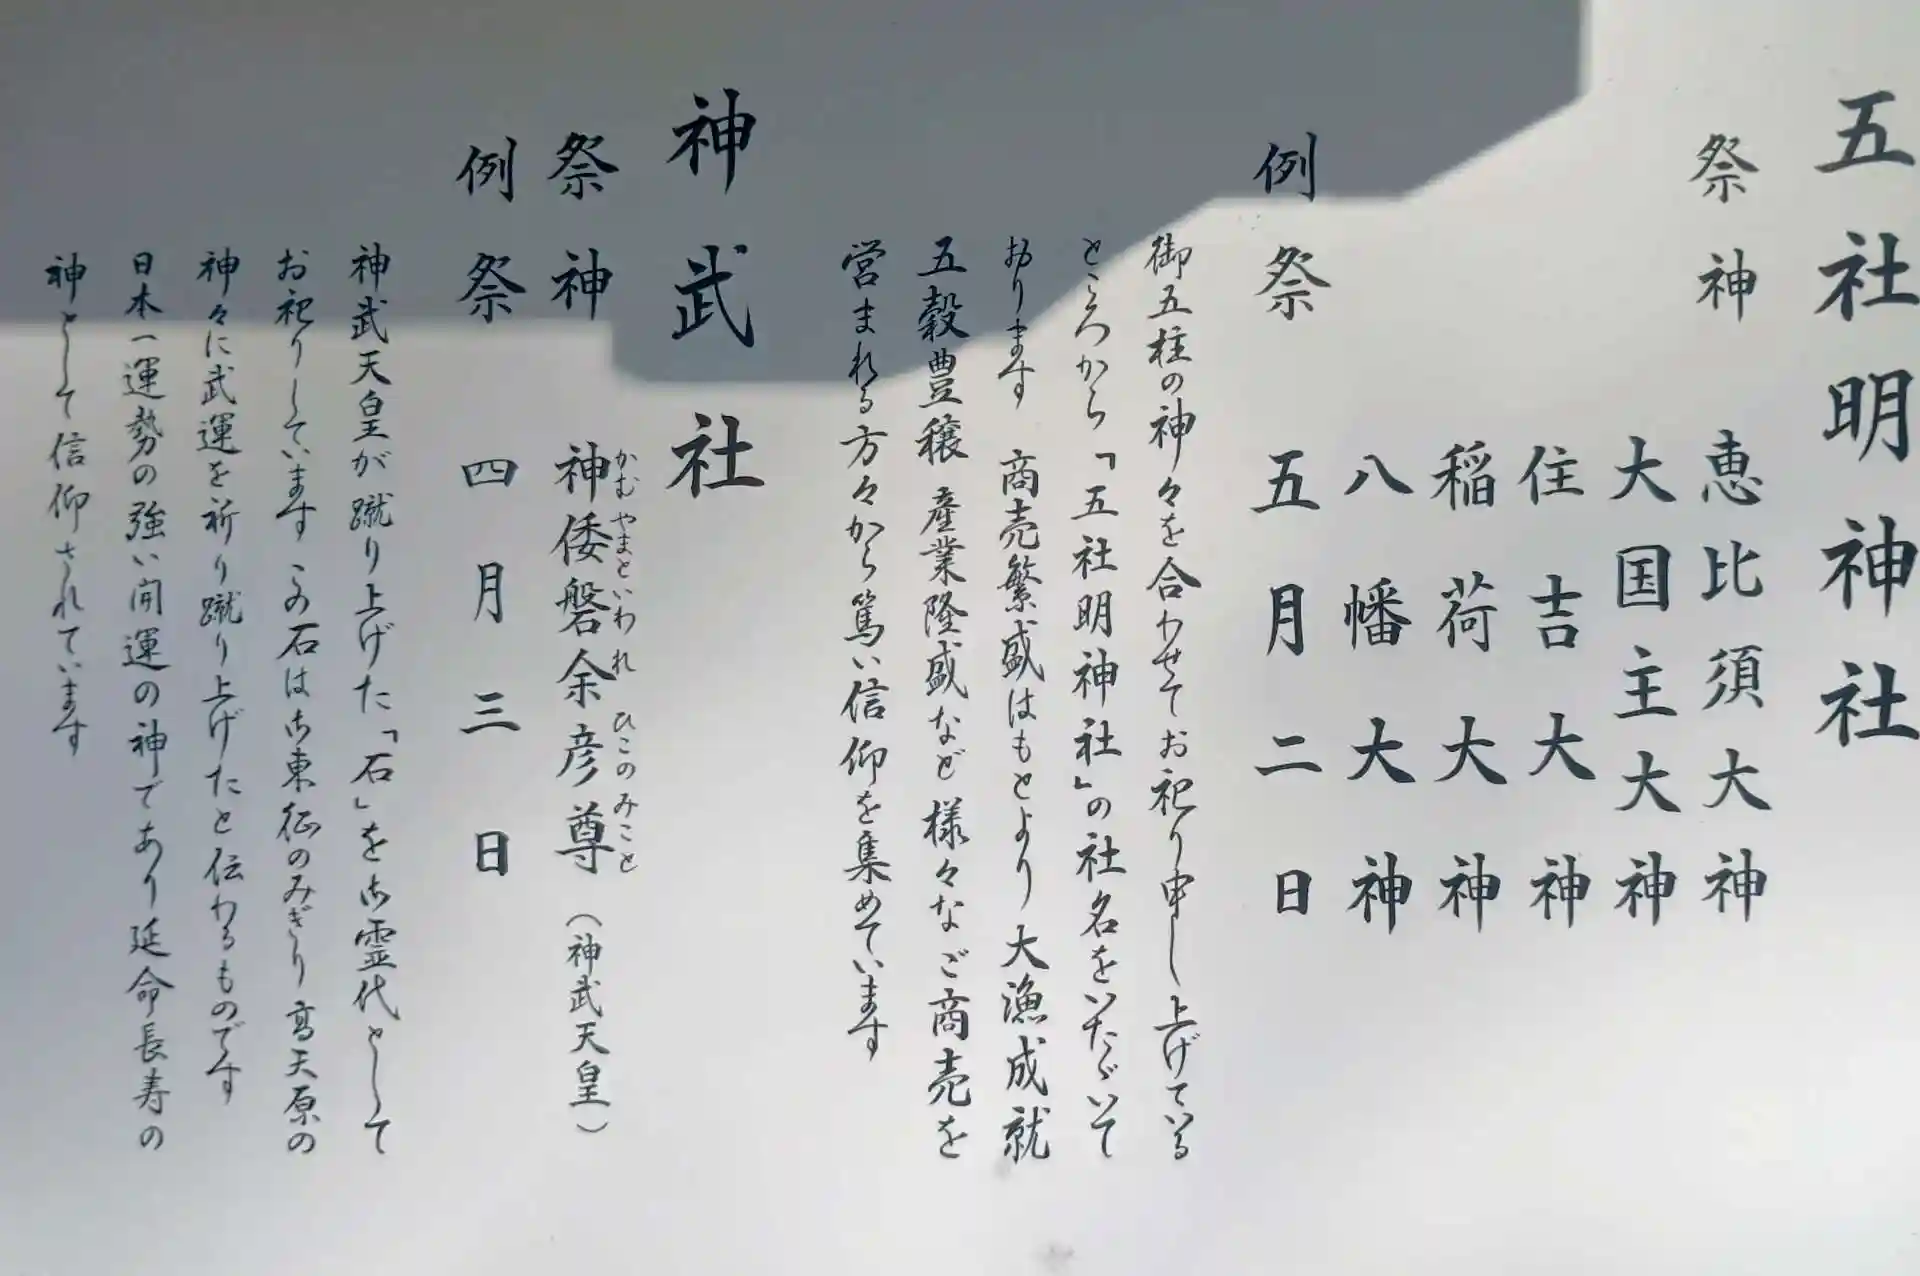 五社明神社
祭神
恵比須大神
大国主大神
住吉大神
稲荷大神
八幡大神
例祭 五月二日
御五柱の神々を合わせてお祀り申し上げている
ところから「五社明神社」の社名をいたゞいて
おります 商売繁盛はもとより大漁成就
五穀豊穣 産業隆盛など様々なご商売を
営まれる方々から篤い信仰を集めています
神武社
祭神 神倭磐余彦尊(神武天皇)
かむやまといわれ ひこのみこと
例祭 四月三日
神武天皇が蹴り上げた「石」を御霊代として
お祀りしています この石は御東征のみぎり高天原の
神々に武運を祈り蹴り上げたと伝わるものです
日本一運勢の強い開運の神であり延命長寿の
神として信仰されています